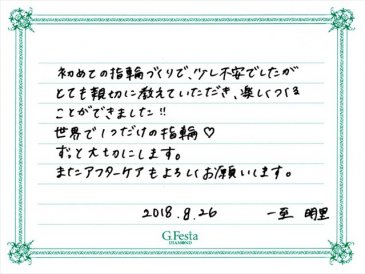 初めての指輪づくりで、少し不安でしたが
とても親切に教えていただき、楽しくつくる
ことができました!!
世界で1つだけの指輪♡
ずっと大切にします。
またアフターケアもよろしくお願いします。
2018.8.26 一至 明里
G.Festa
DIAMOND